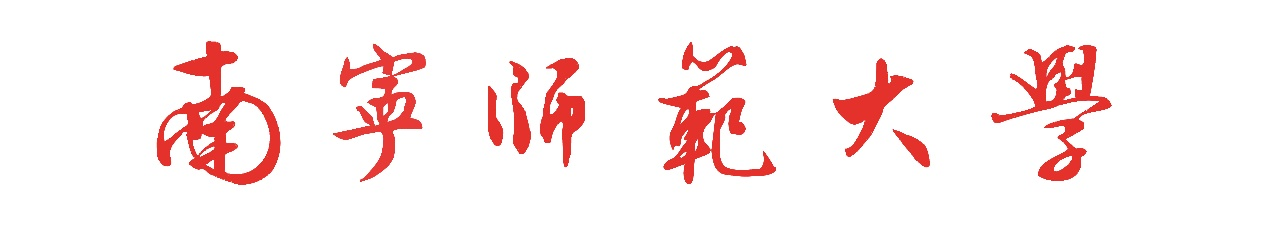 南寧师範大學